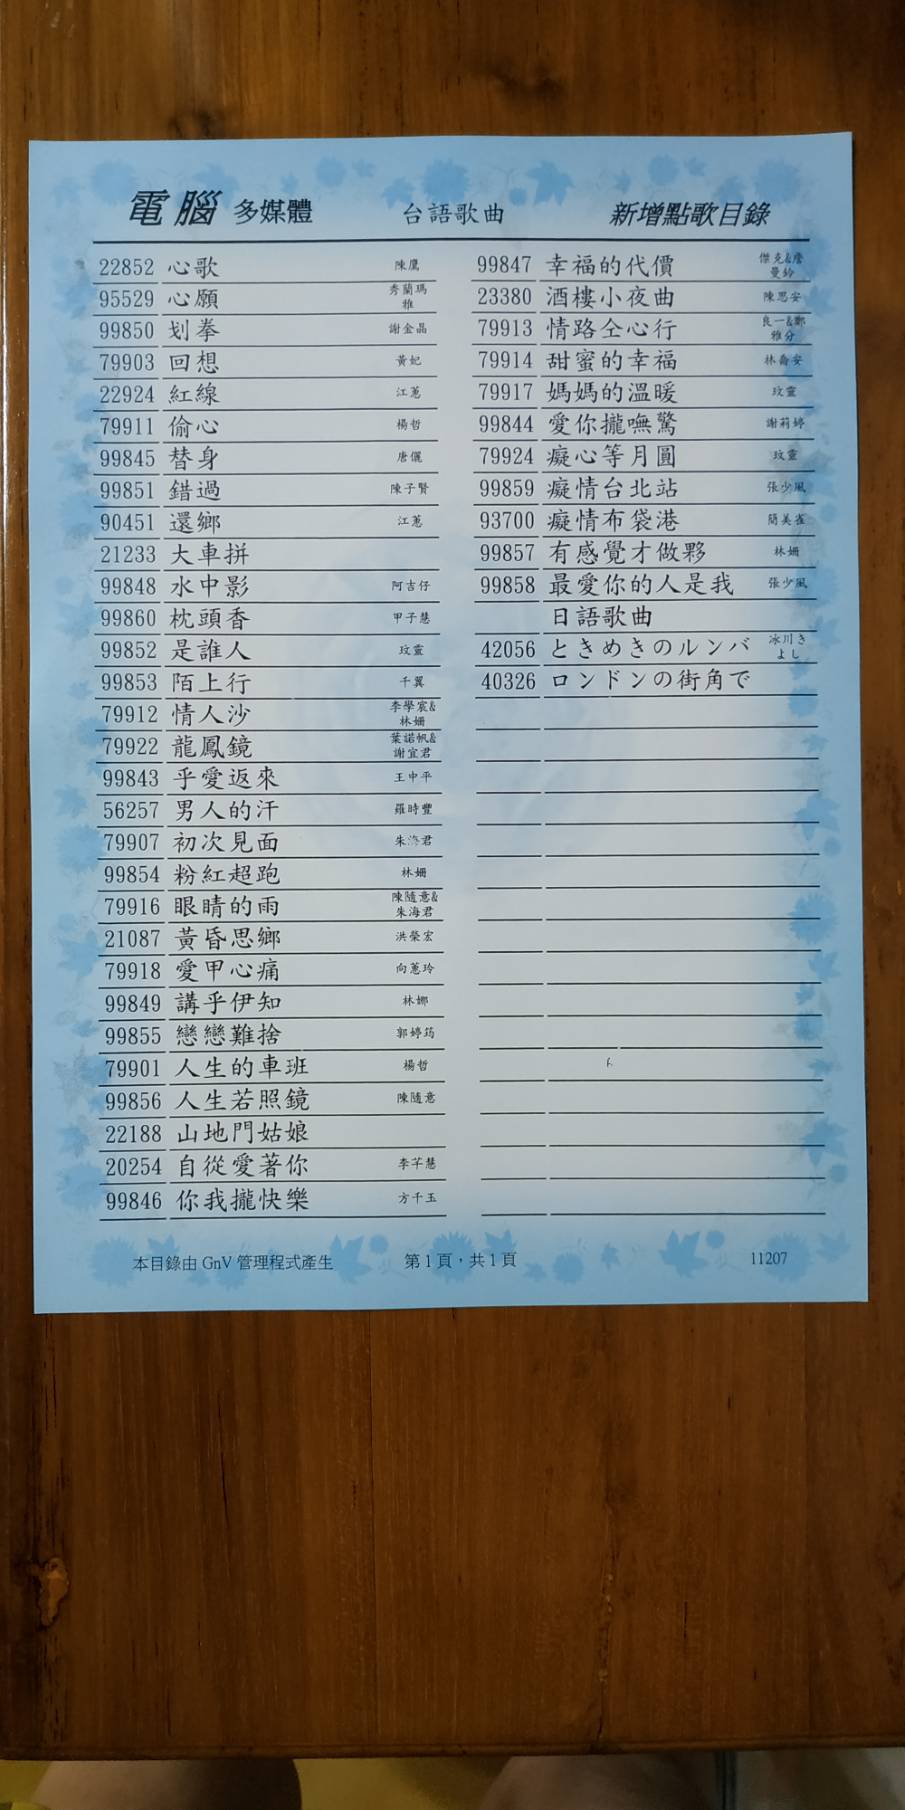 電腦 多媒體 台語歌曲 新增點歌目錄
22852 心歌 陳鷹
95529 心願 秀蘭瑪雅
99850 划拳 謝金晶
79903 回想 黃妃
22924 紅線 江蕙
79911 偷心 楊哲
99845 替身 唐儷
99851 錯過 陳子賢
90451 還鄉 江蕙
21233 大車拼
99848 水中影 阿吉仔
99860 枕頭香 甲子慧
99852 是誰人 玟靈
99853 陌上行 千翼
79912 情人沙 李學宸&林姍
79922 龍鳳鏡 葉諾帆&謝宜君
99843 乎愛返來 王中平
56257 男人的汗 羅時豐
79907 初次見面 朱海君
99854 粉紅超跑 林姍
79916 眼睛的雨 陳隨意&朱海君
21087 黃昏思鄉 洪榮宏
79918 愛甲心痛 向蕙玲
99849 講乎伊知 林娜
99855 戀戀難捨 郭婷筠
79901 人生的車班 楊哲
99856 人生若照鏡 陳隨意
22188 山地門姑娘
20254 自從愛著你 李芊慧
99846 你我攏快樂 方千玉
99847 幸福的代價 傑克&詹曼鈴
23380 酒樓小夜曲 陳思安
79913 情路仝心行 良一&鄭雅分
79914 甜蜜的幸福 林喬安
79917 媽媽的溫暖 玟靈
99844 愛你攏嘸驚 謝莉婷
79924 癡心等月圓 玟靈
99859 癡情台北站 張少風
93700 癡情布袋港 簡美雀
99857 有感覺才做夥 林姍
99858 最愛你的人是我 張少風
日語歌曲
42056 ときめきのルンバ 氷川きよし
40326 ロンドンの街角で
本目錄由 GnV 管理程式產生 第1頁，共1頁 11207